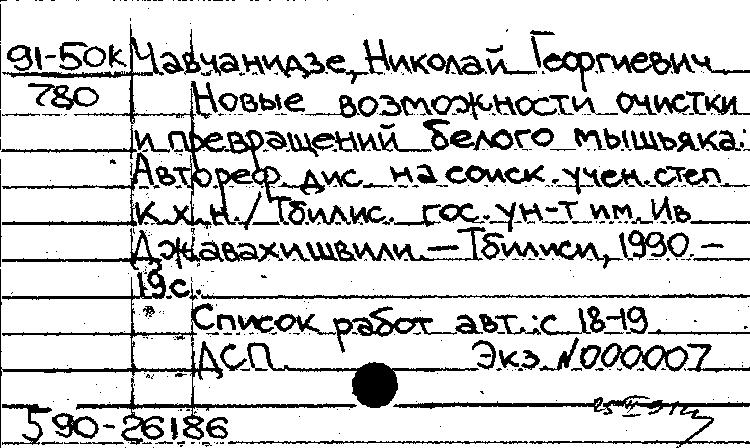 91-50К Чавчанидзе, Николай Георгиевич
780 Новые возможности очистки
и превращений белого мышьяка:
Автореф. дис. на соиск. учен. степ.
к.х.н. / Тбилис. гос. ун-т им. Ив.
Джавахишвили. — Тбилиси, 1990. —
19 с.
Список работ авт.: с. 18-19.
ДСП. Экз. N000007
590-26186